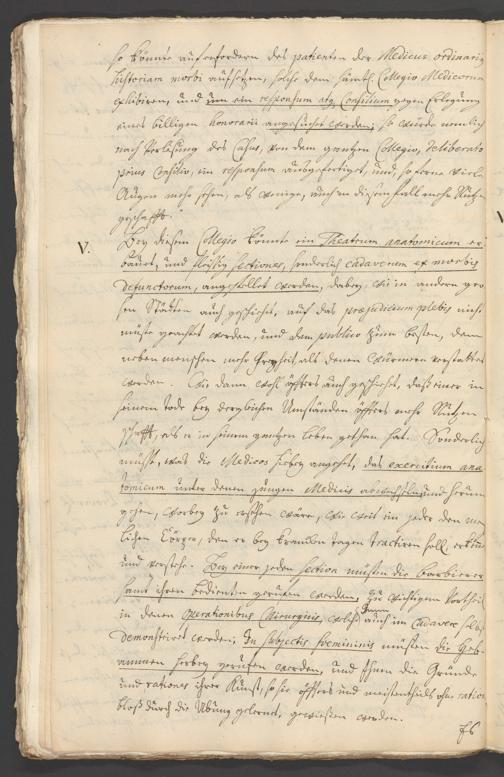 so könte auf erfordern des patienten der Medicus ordinarius
historiam morbi aufsetzen, solche dem sämtl. Collegio Medicorum
exhibiren, und um ein responsum atq. Consilium gegen Erlegung
eines billigen honorarii angesuchet werden, so würde nemlich
nach Verlesung des Casus, von dem gantzen Collegio, deliberato
prius Consilio, ein responsum ausgefertiget, und, so ferne viele
Augen mehr sehen, als wenige, auch in diesem fall mehr Nutzen
geschafft.
V. Bey diesem Collegio könte ein Theatrum anatomicum er
bauet, und fleißig sectiones, sonderlich cadaverum ex morbis
defunctorum, angestellet werden, dabey, wie in andern gro
sen Städten auch geschicht, auf das praejudicium plebis nicht
müste geachtet werden, und dem publico zum besten, dem
neben menschen mehr Freyheit als denen Würmern verstattet
werden. Wie dann wohl öffters auch geschicht, daß einer in
seinem Tode bey dergleichen Umständen öffters mehr Nutzen
schafft, als er in seinem gantzen Leben gethan hat. Sonderlich
müste, was die Medicos hiebey angehet, das exercitium ana
tomicum unter denen jungen Medicis abwechslend herum
gehen, worbey zu ersehen wäre, wie weit ein jeder den me
lichen Cörper, den er bey krancken tagen tractiren soll, erkenne
und verstehe. Bey einer jeden Section müsten die Barbierer
samt ihren bedienten geruffen werden, zu wichtigem Vortheil
in denen Operationibus Chirurgicis, welche Ihnen auch im Cadaver
demonstriret werden. In Subjectis foemininis müsten die Heb
ammen herbey geruffen werden, und Ihnen die Gründe
und rationes ihrer Kunst, so sie öffters und meistentheils ohne ration
bloß durch die Übung gelernet, gewiesen werden.